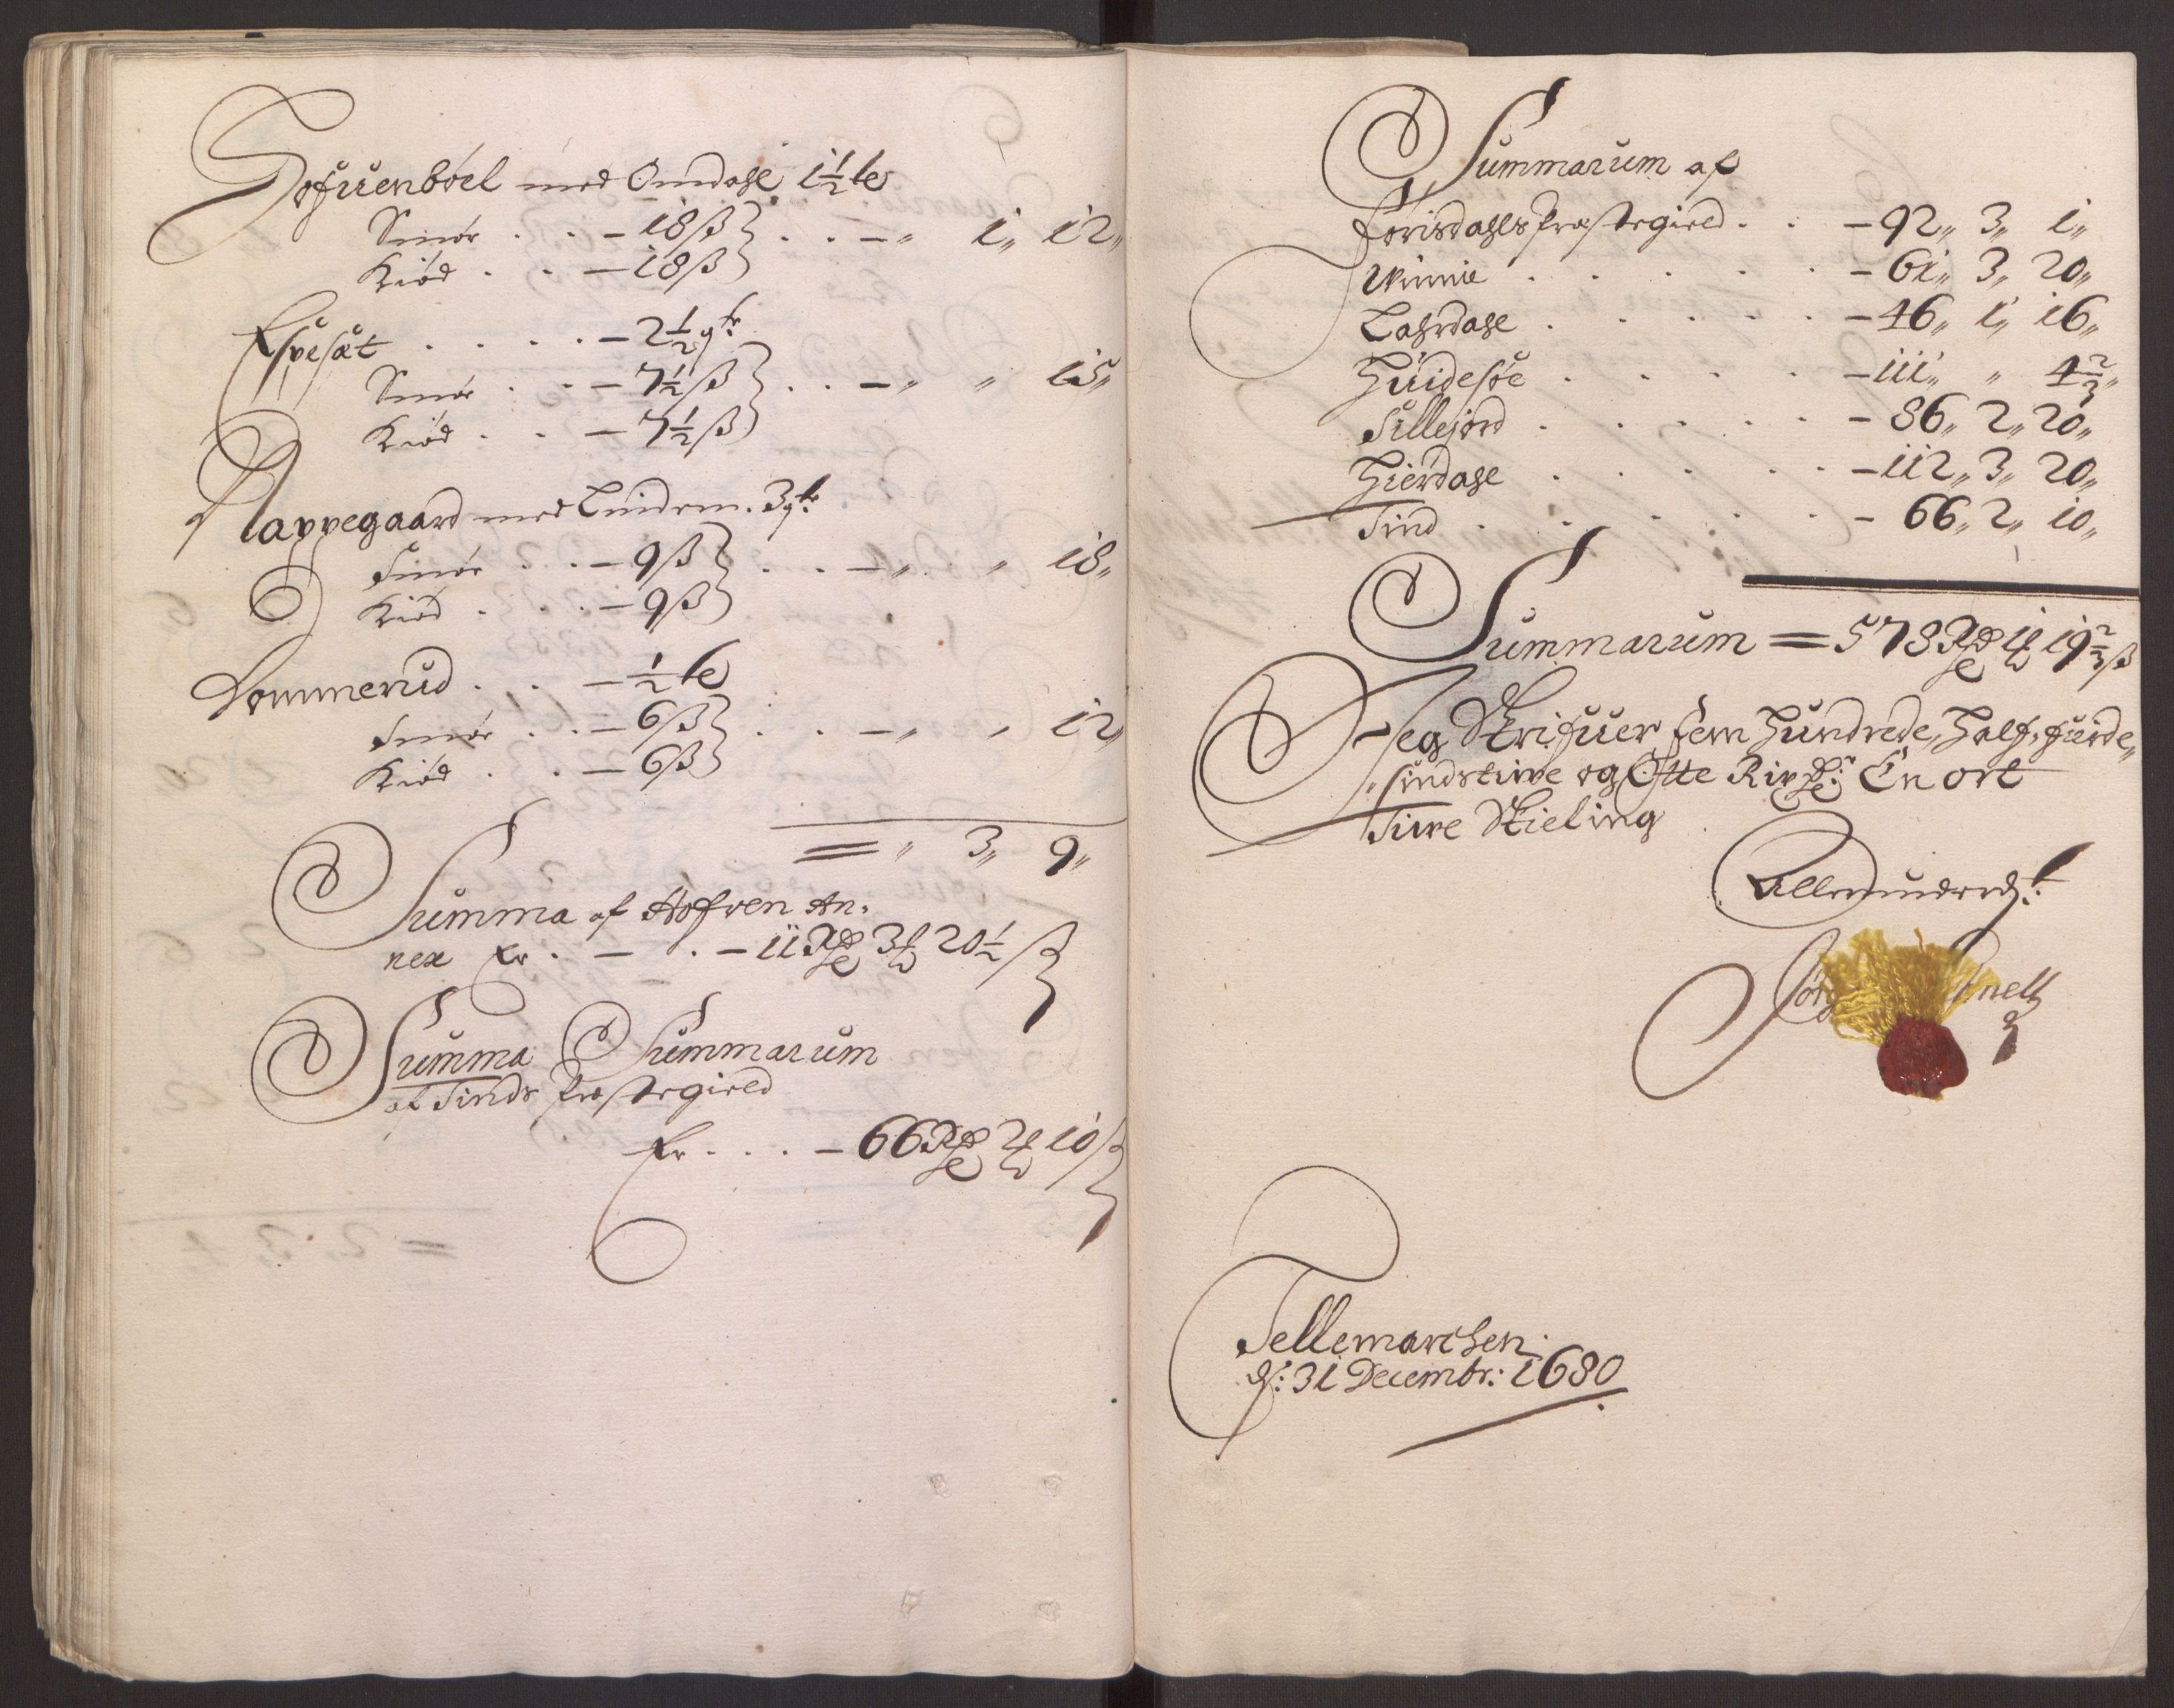 Hofuenböel med Omdahl 1½ le
Smör . . – 18 ß } . . – „ 1„ 12„
Kiöd . . – 18 ß
Espesæt . . . . – 2½ gr:
Smör . . – 7½ ß } . . – „ „ 15„
Kiöd . . – 7½ ß
Nappegaard med Lindem. 3 gr
Smör . . – 9 ß } . . – „ „ 18„
Kiöd . . . – 9 ß
Dommerud . . – ½ le
Smör . . – 6 ß } . . – „ „ 12„
Kiöd . . – 6 ß
= „ 3„ 9„
Summa af Hofven An,
nex Er . – . – 11 Rdr 3 ₰ 20½ ß
Summa Summarum
af Tinds Præstegield
Er . . . – 66 Rdr 2 ₰ 10 ß
Summarum af
Förisdahls Præstegield . . – 92„ 3„ 1„
Winnie . . . . . – 61„ 3„ 20„
Lahrdahl . . . . . – 46„ 1„ 16„
Huidesöe . . . . . – 111„ „ 4⅔„
Sillejord . . . . . – 86„ 2„ 20„
Hierdahl . . . . . – 112„ 3„ 20„
Tind . . . . . – 66„ 2„ 10„
Summarum = 578 Rdr 1 ₰ 19⅔ ß
Jeg Skrifuer fem Hundrede, Half„fierde„
„sindstiuve og Otte Rixdr: En ort
Tiuve Skieling
Allerunderdst:
Jör nels
Tellemarchen
d: 31 Decembr: 1680